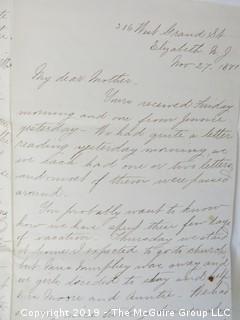 216 West Grand St
Elizabeth N J
Nov. 27, 18
My dear Mother.
Yours received Friday
morning and one from Jennie
yesterday. We had quite a letter
reading yesterday morning as
we each had one or two letters
and most of them were passed
around.
You probably want to know
how we have spent these few days
of vacation. Thursday we stayed
home. I expected to go to church
but was away and
we girls decided to stay and
Moore and Auntie. We had
COPYRIGHT 2019 - The McGuire Group